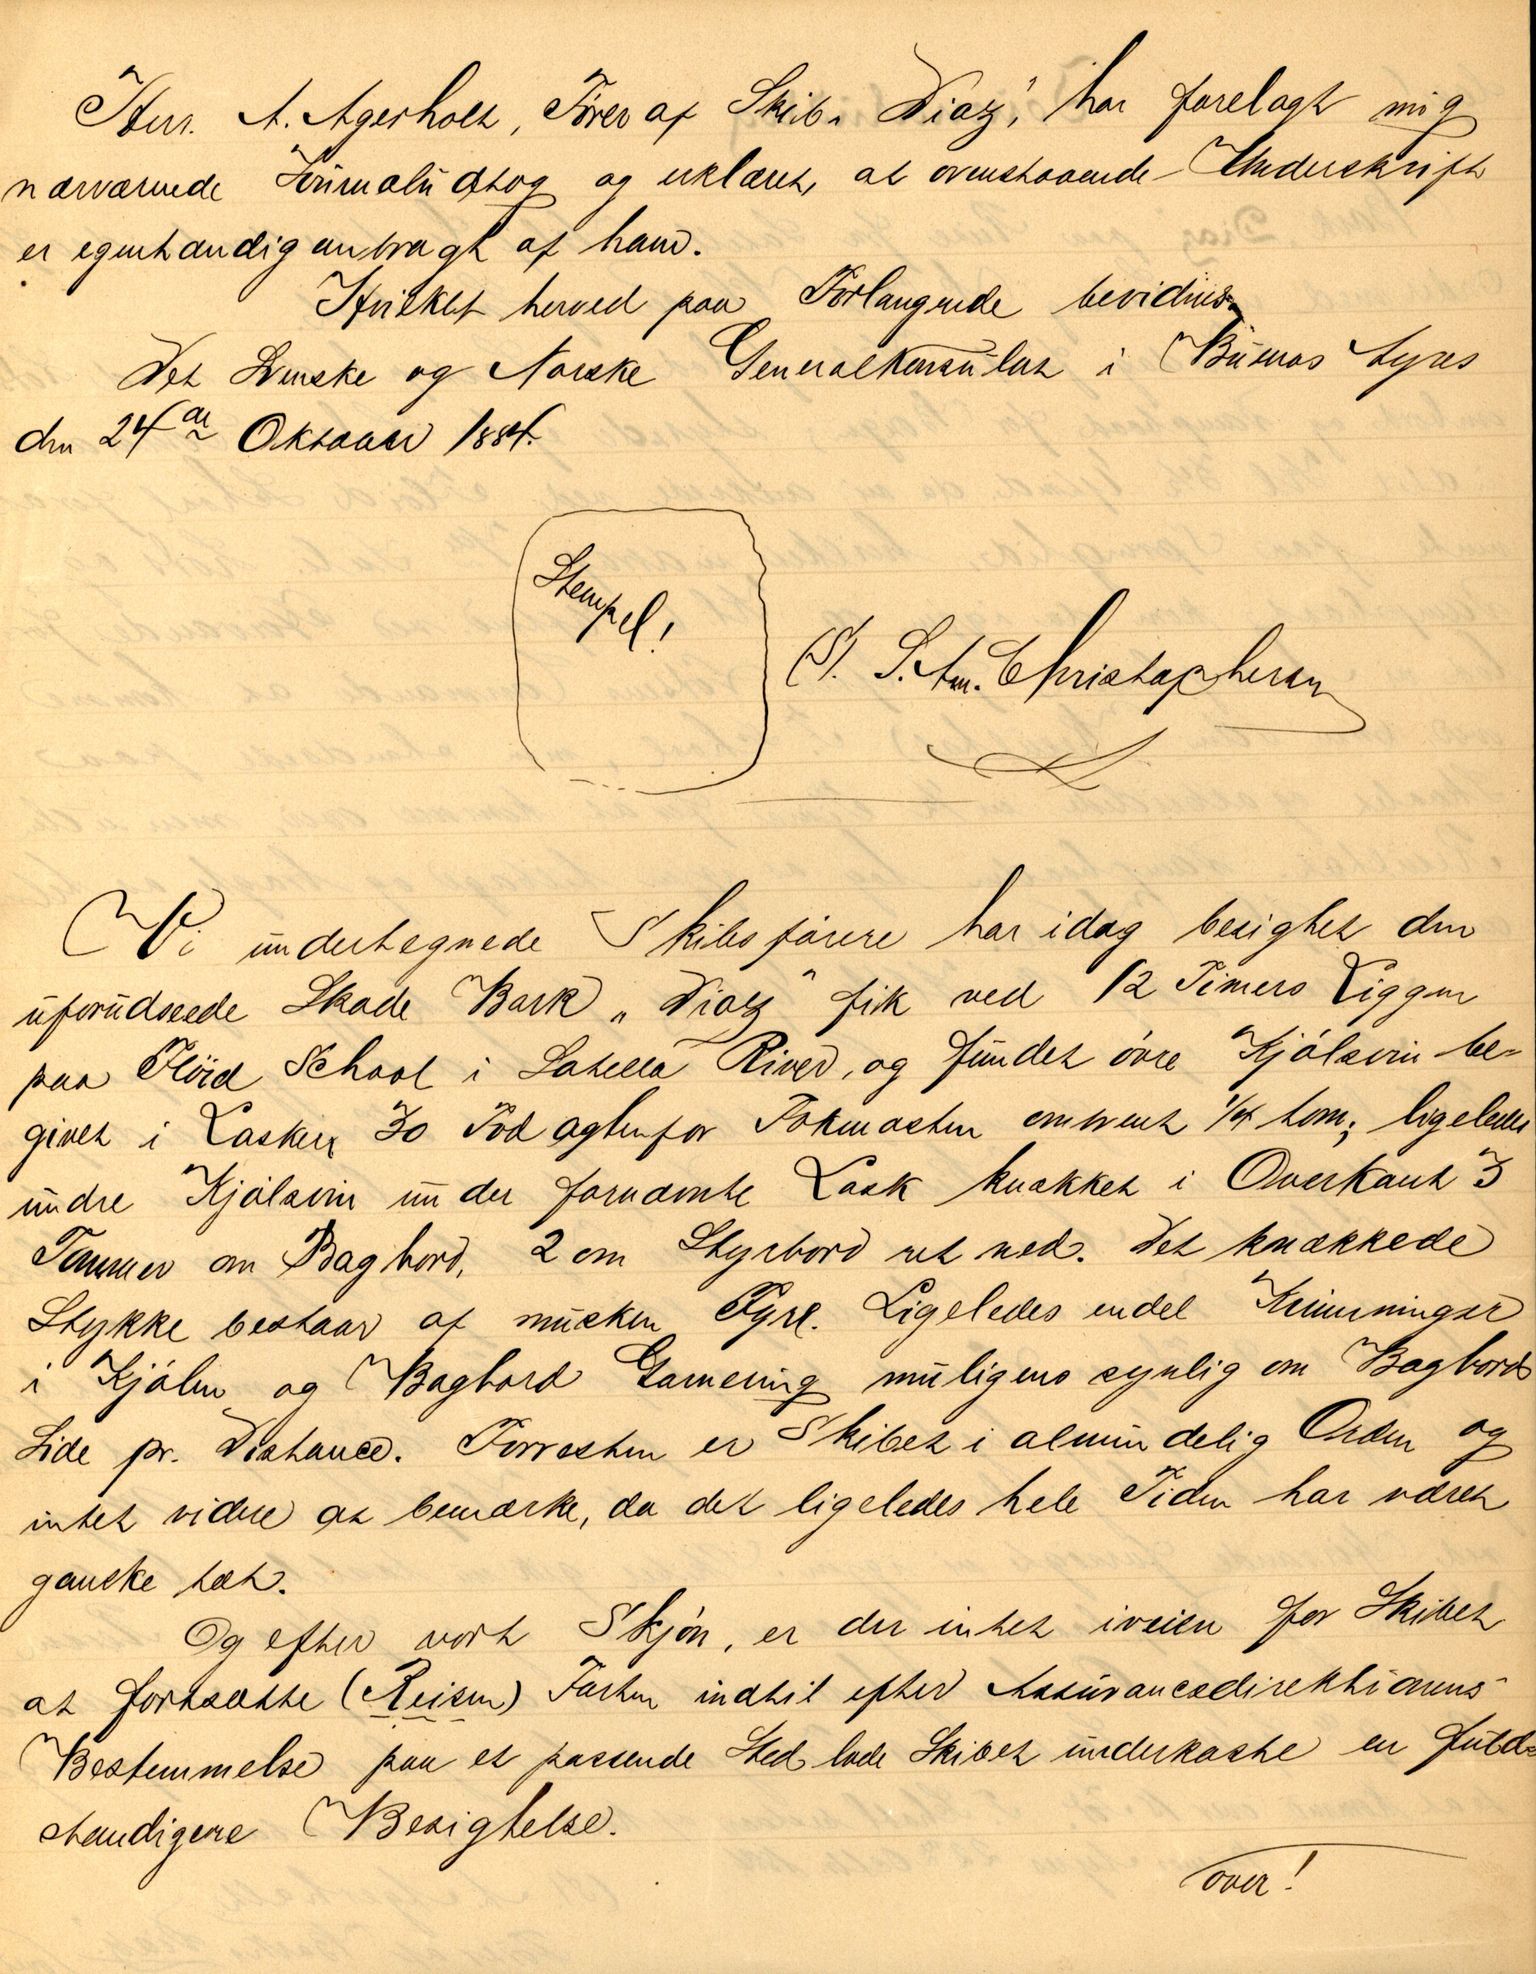 Herr. A. Agerholt, Fører af Skib „Diaz“, har forelagt mig
nærværende Journaludtog og erklæret, at ovenstaaende Underskrift
er egenhændig anbragt af ham.
Hvilket herved paa Forlangende bevidnes.
Det Svenske og Norske Generalkonsulat i Buenos Ayres
den 24de Oktober 1884.
Stempel!
S. Am. Christophersen
Vi undertegnede Skibsførere har idag besigtet den
uforudseede Skade Bark „Diaz“ fik ved 12 Timers Liggen
paa Flöid School i Satilla River, og fundet øvre Kjølsvin be-
givet i Lasken 30 Fod agtenfor Fokmasten omtrent 1/4 tom; ligeledes
undre Kjølsvin under fornævnte Lask knækket i Overkant 3
Tommer om Bagbord, 2 om Styrbord ret ned. Det knækkede
Stykke bestaar af musken Fyre. Ligeledes endel Krumninger
i Kjølen og Bagbord Garnering muligens synlig om Bagbords
Side pr. Distance. Forresten er Skibet i almindelig Orden og
intet videre at bemærke, da det ligeledes hele Tiden har været
ganske tæt.
Og efter vort Skjøn, er der intet iveien for Skibet
at fortsætte (Reisen) Farten indtil efter Assurancedirektionens
Bestemmelse paa et passende Sted lade Skibet underkaste en fuld-
stændigere Besigtelse.
over!